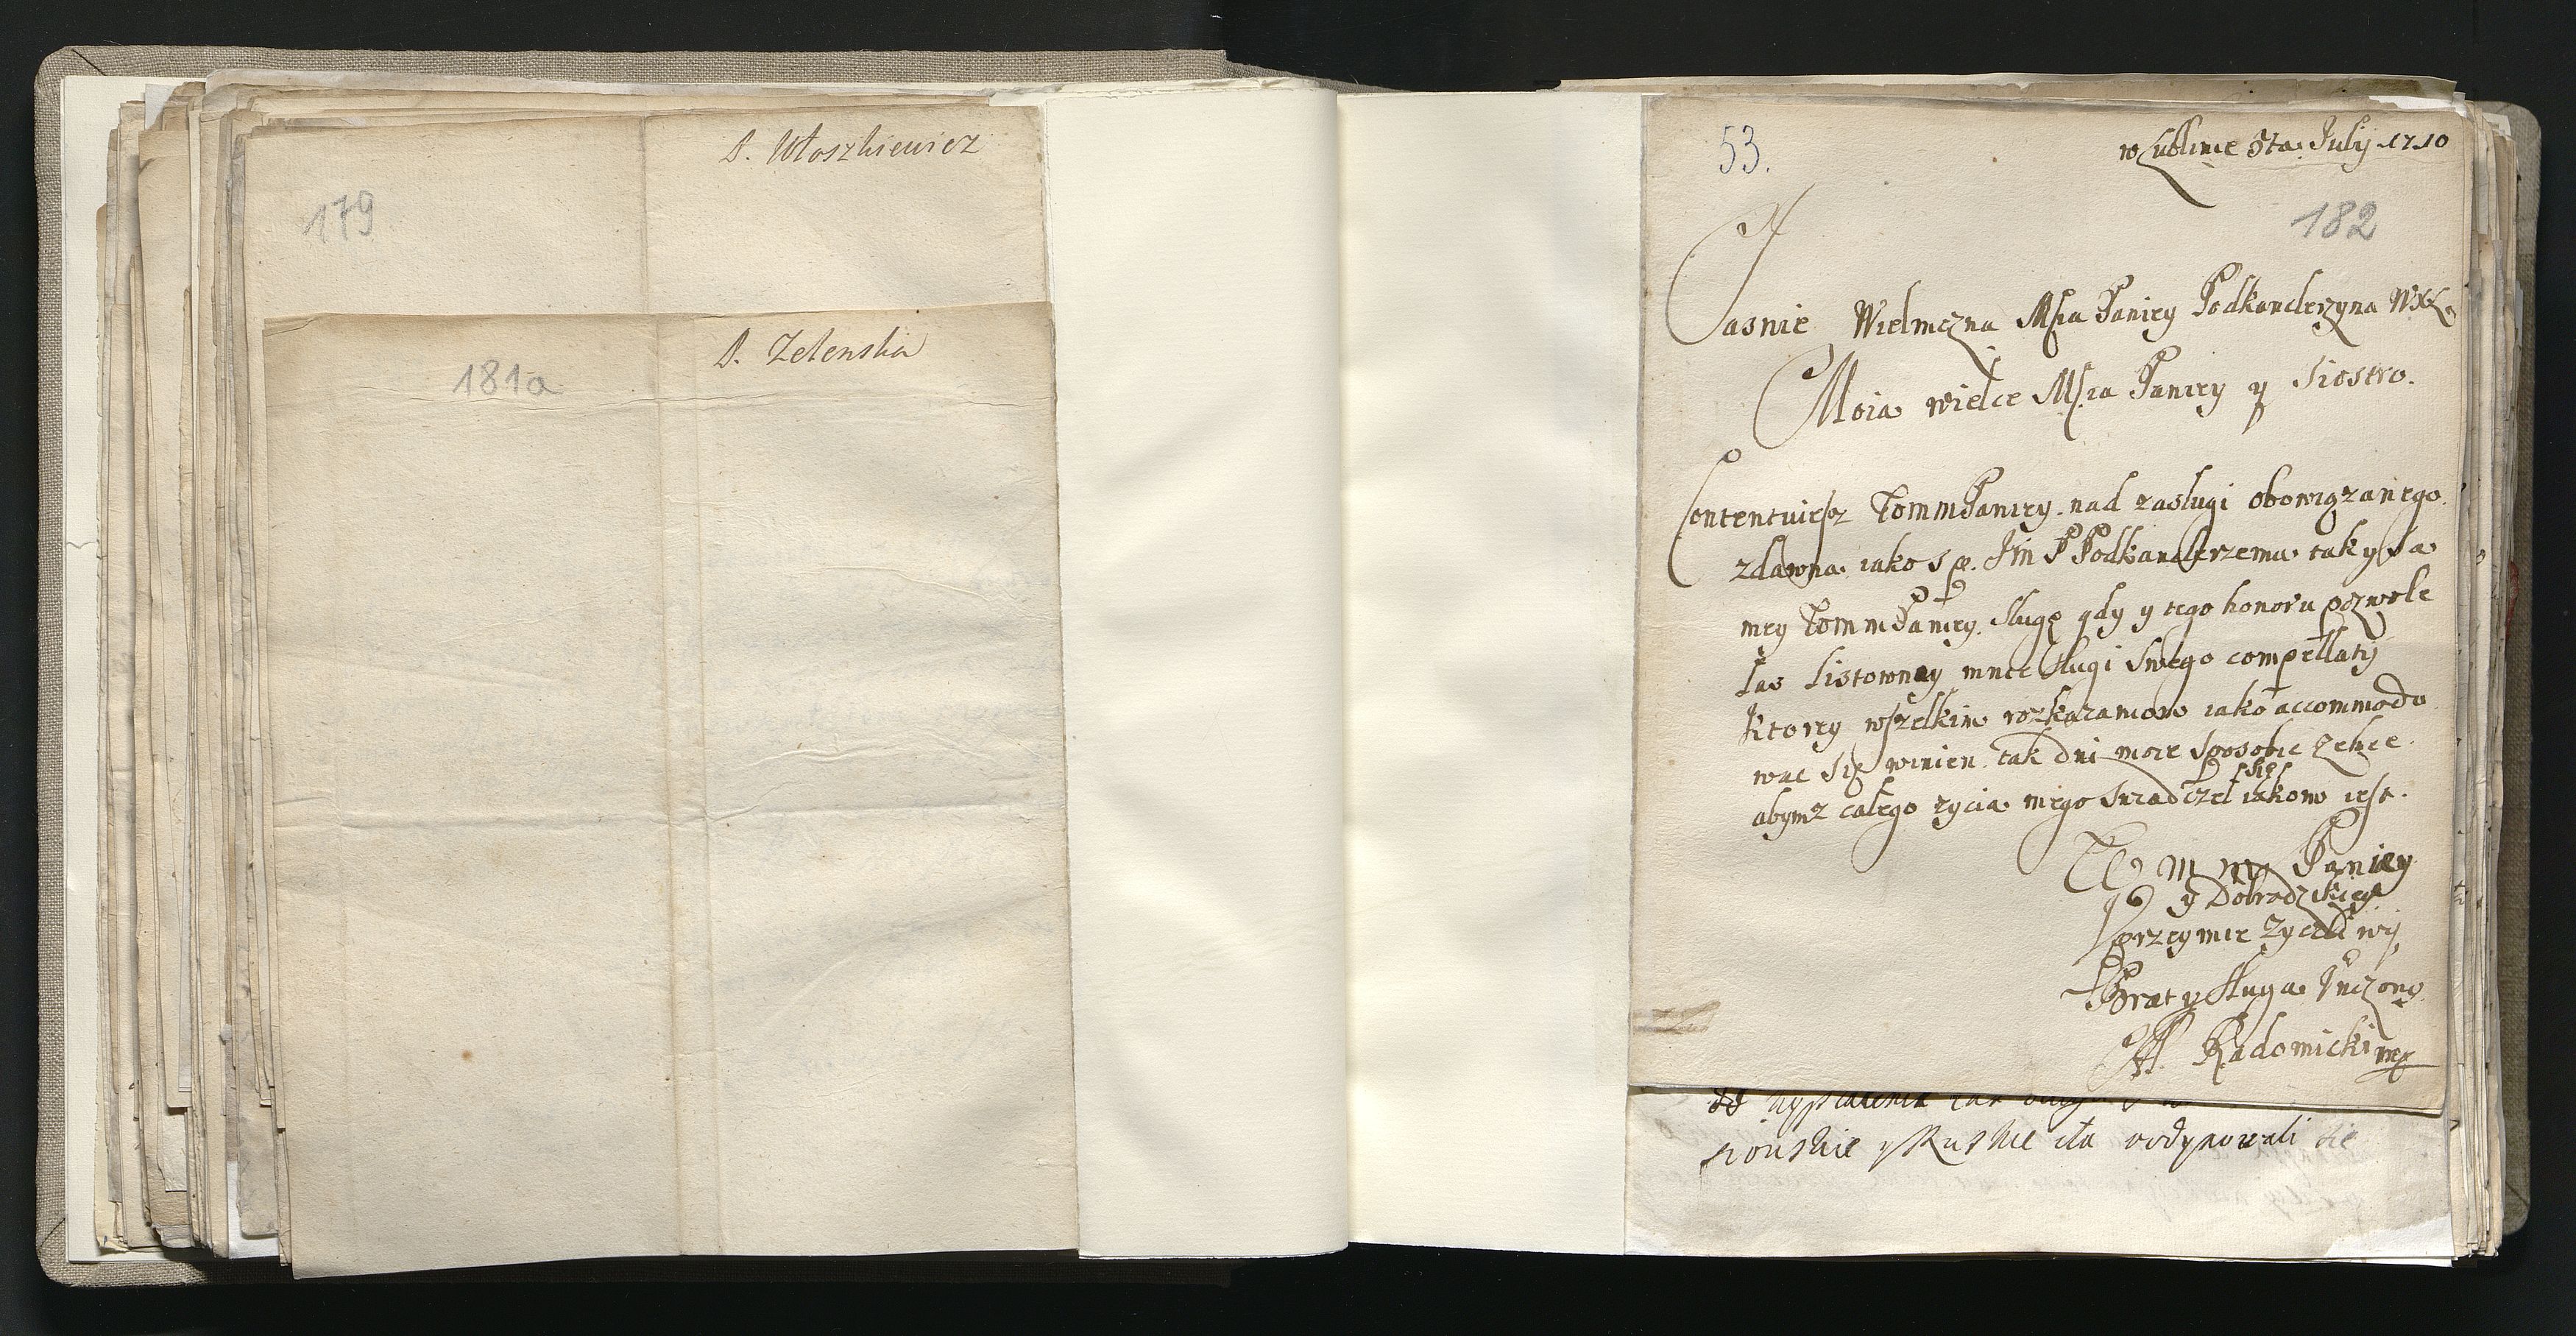 D. Włoszkiewicz
179
D. Zelenska
181a
53.
w Lublinie 3ta July 1710
182
Jasnie Wielmozna Msia Paniey Podkanclerzyna WXL
Moia wielce Msia Paniey y Siostro.
Contentuiesz WmmPaniey nad zasługi obowiązanego
zdawna iako s p. Jm P Podkanclerzemu tak y sa
mey WmmPaniey sługę gdy y tego honoru pozwole
łas listowney mnie sługi swego compellaty
ktorey wszelkim rozkazaniom iako accommodo
wac się winien tak dni moie sposobie zechce
abym z całego zycia mego swiadczeł się iakom iest.
W m m Paniey
y Dobrodzikiey
przeymie zyczliwy
Brat y sługa Unizony
A Radomicki mp
sionskie y Ruskie ordynowali sie